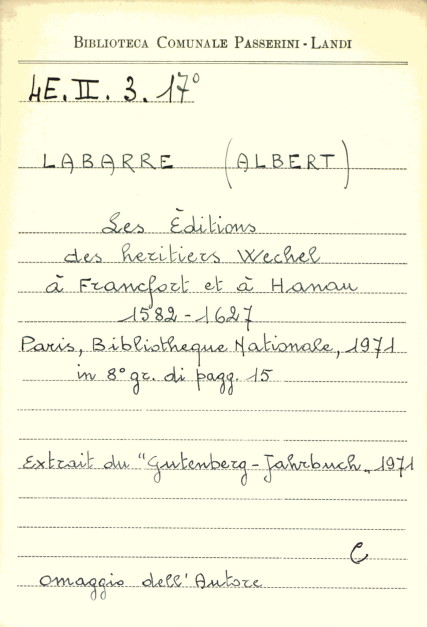 BIBLIOTECA COMUNALE PASSERINI - LANDI
4E. II. 3. 17°
LABARRE (ALBERT)
Les Èditions
des heritiers Wechel
à Francfort et à Hanau
1582 - 1627
Paris, Bibliotheque Nationale, 1971
in 8° gr. di pagg. 15
Extrait du "Gutenberg - Jahrbuch„ 1971
C
omaggio dell'Autore